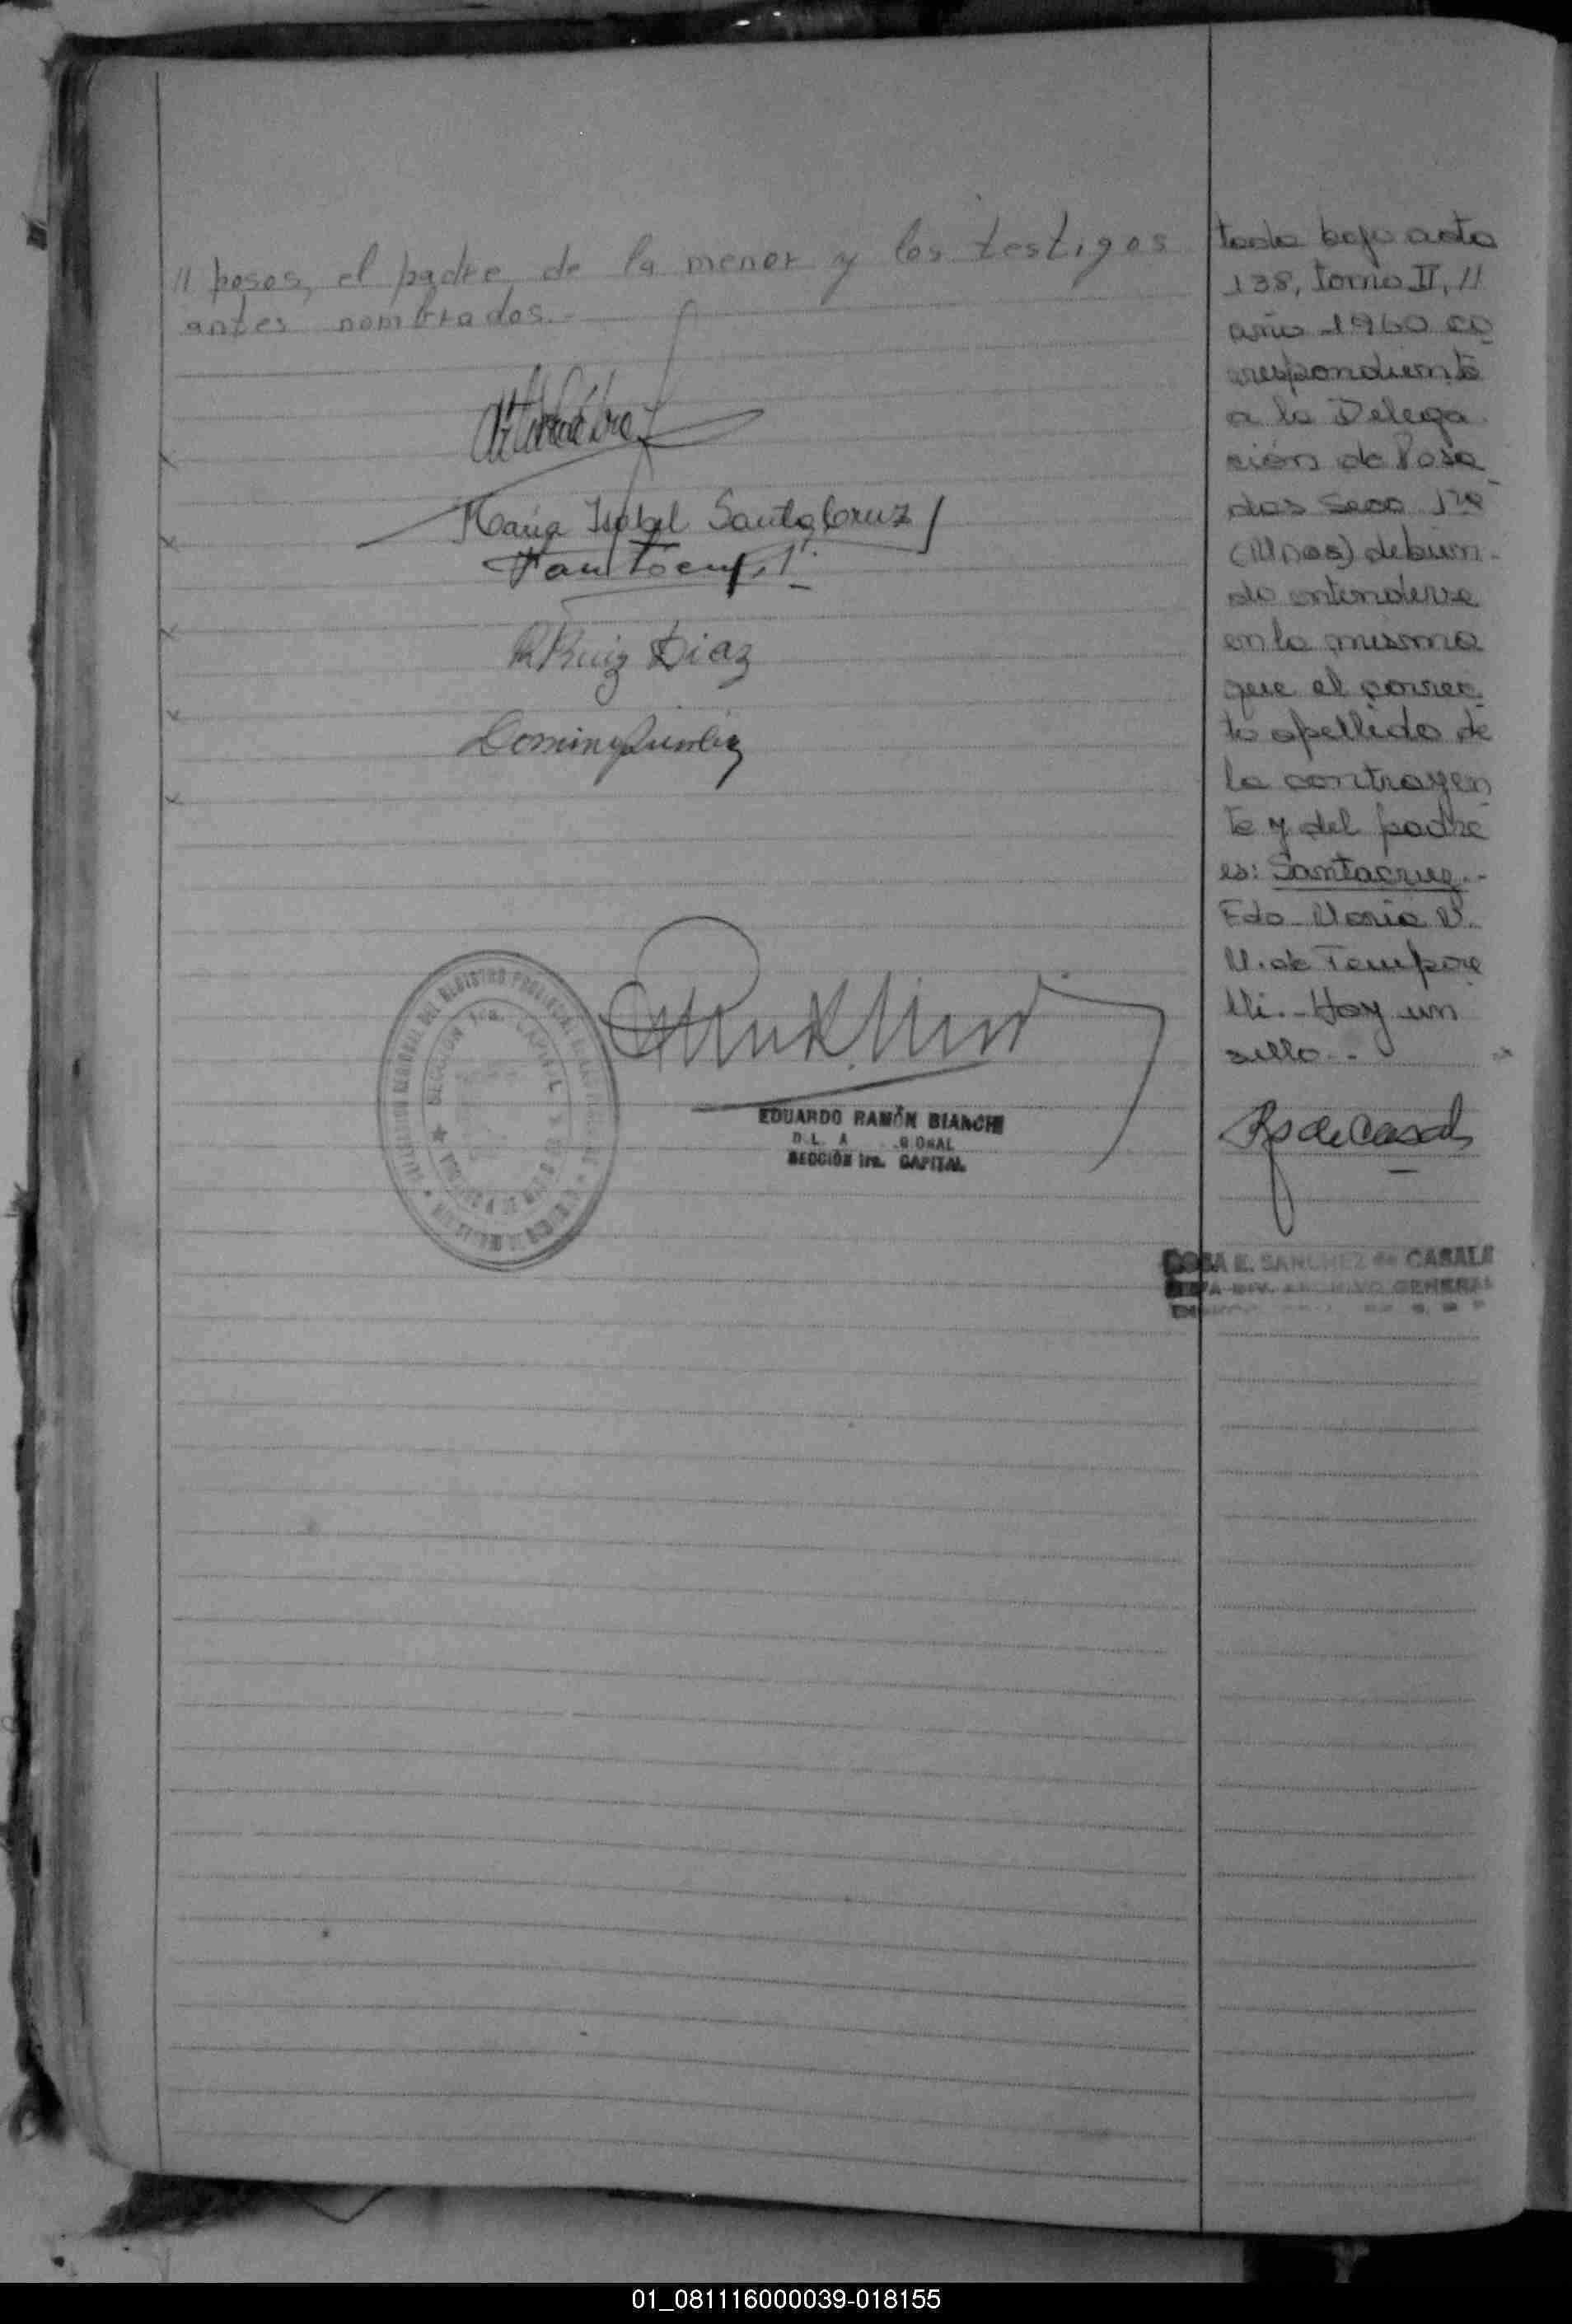 // posos, el padre de la menor y los testigos
antes nombrados.-
María Isabel Santa Cruz
R Ruiz Diaz
SECCION 1ra. CAPITAL
EDUARDO RAMÓN BIANCHI
SECCIÓN 1ra. CAPITAL
tada bajo acta
138, tomo II, //
año 1960 co
rrespondiente
a la Delega
ción de Posa
das Secc 1ra
(Mnes) debien-
do entenderse
en la misma
que el correc
to apellido de
la contrayen
te y del padre
es: Santacruz.-
Fdo. María V.
M. de Tempore
lli.- Hay un
sello.-
ROSA E. SANCHEZ de CASALS
JEFA DIV. ARCHIVO GENERAL
01_081116000039-018155